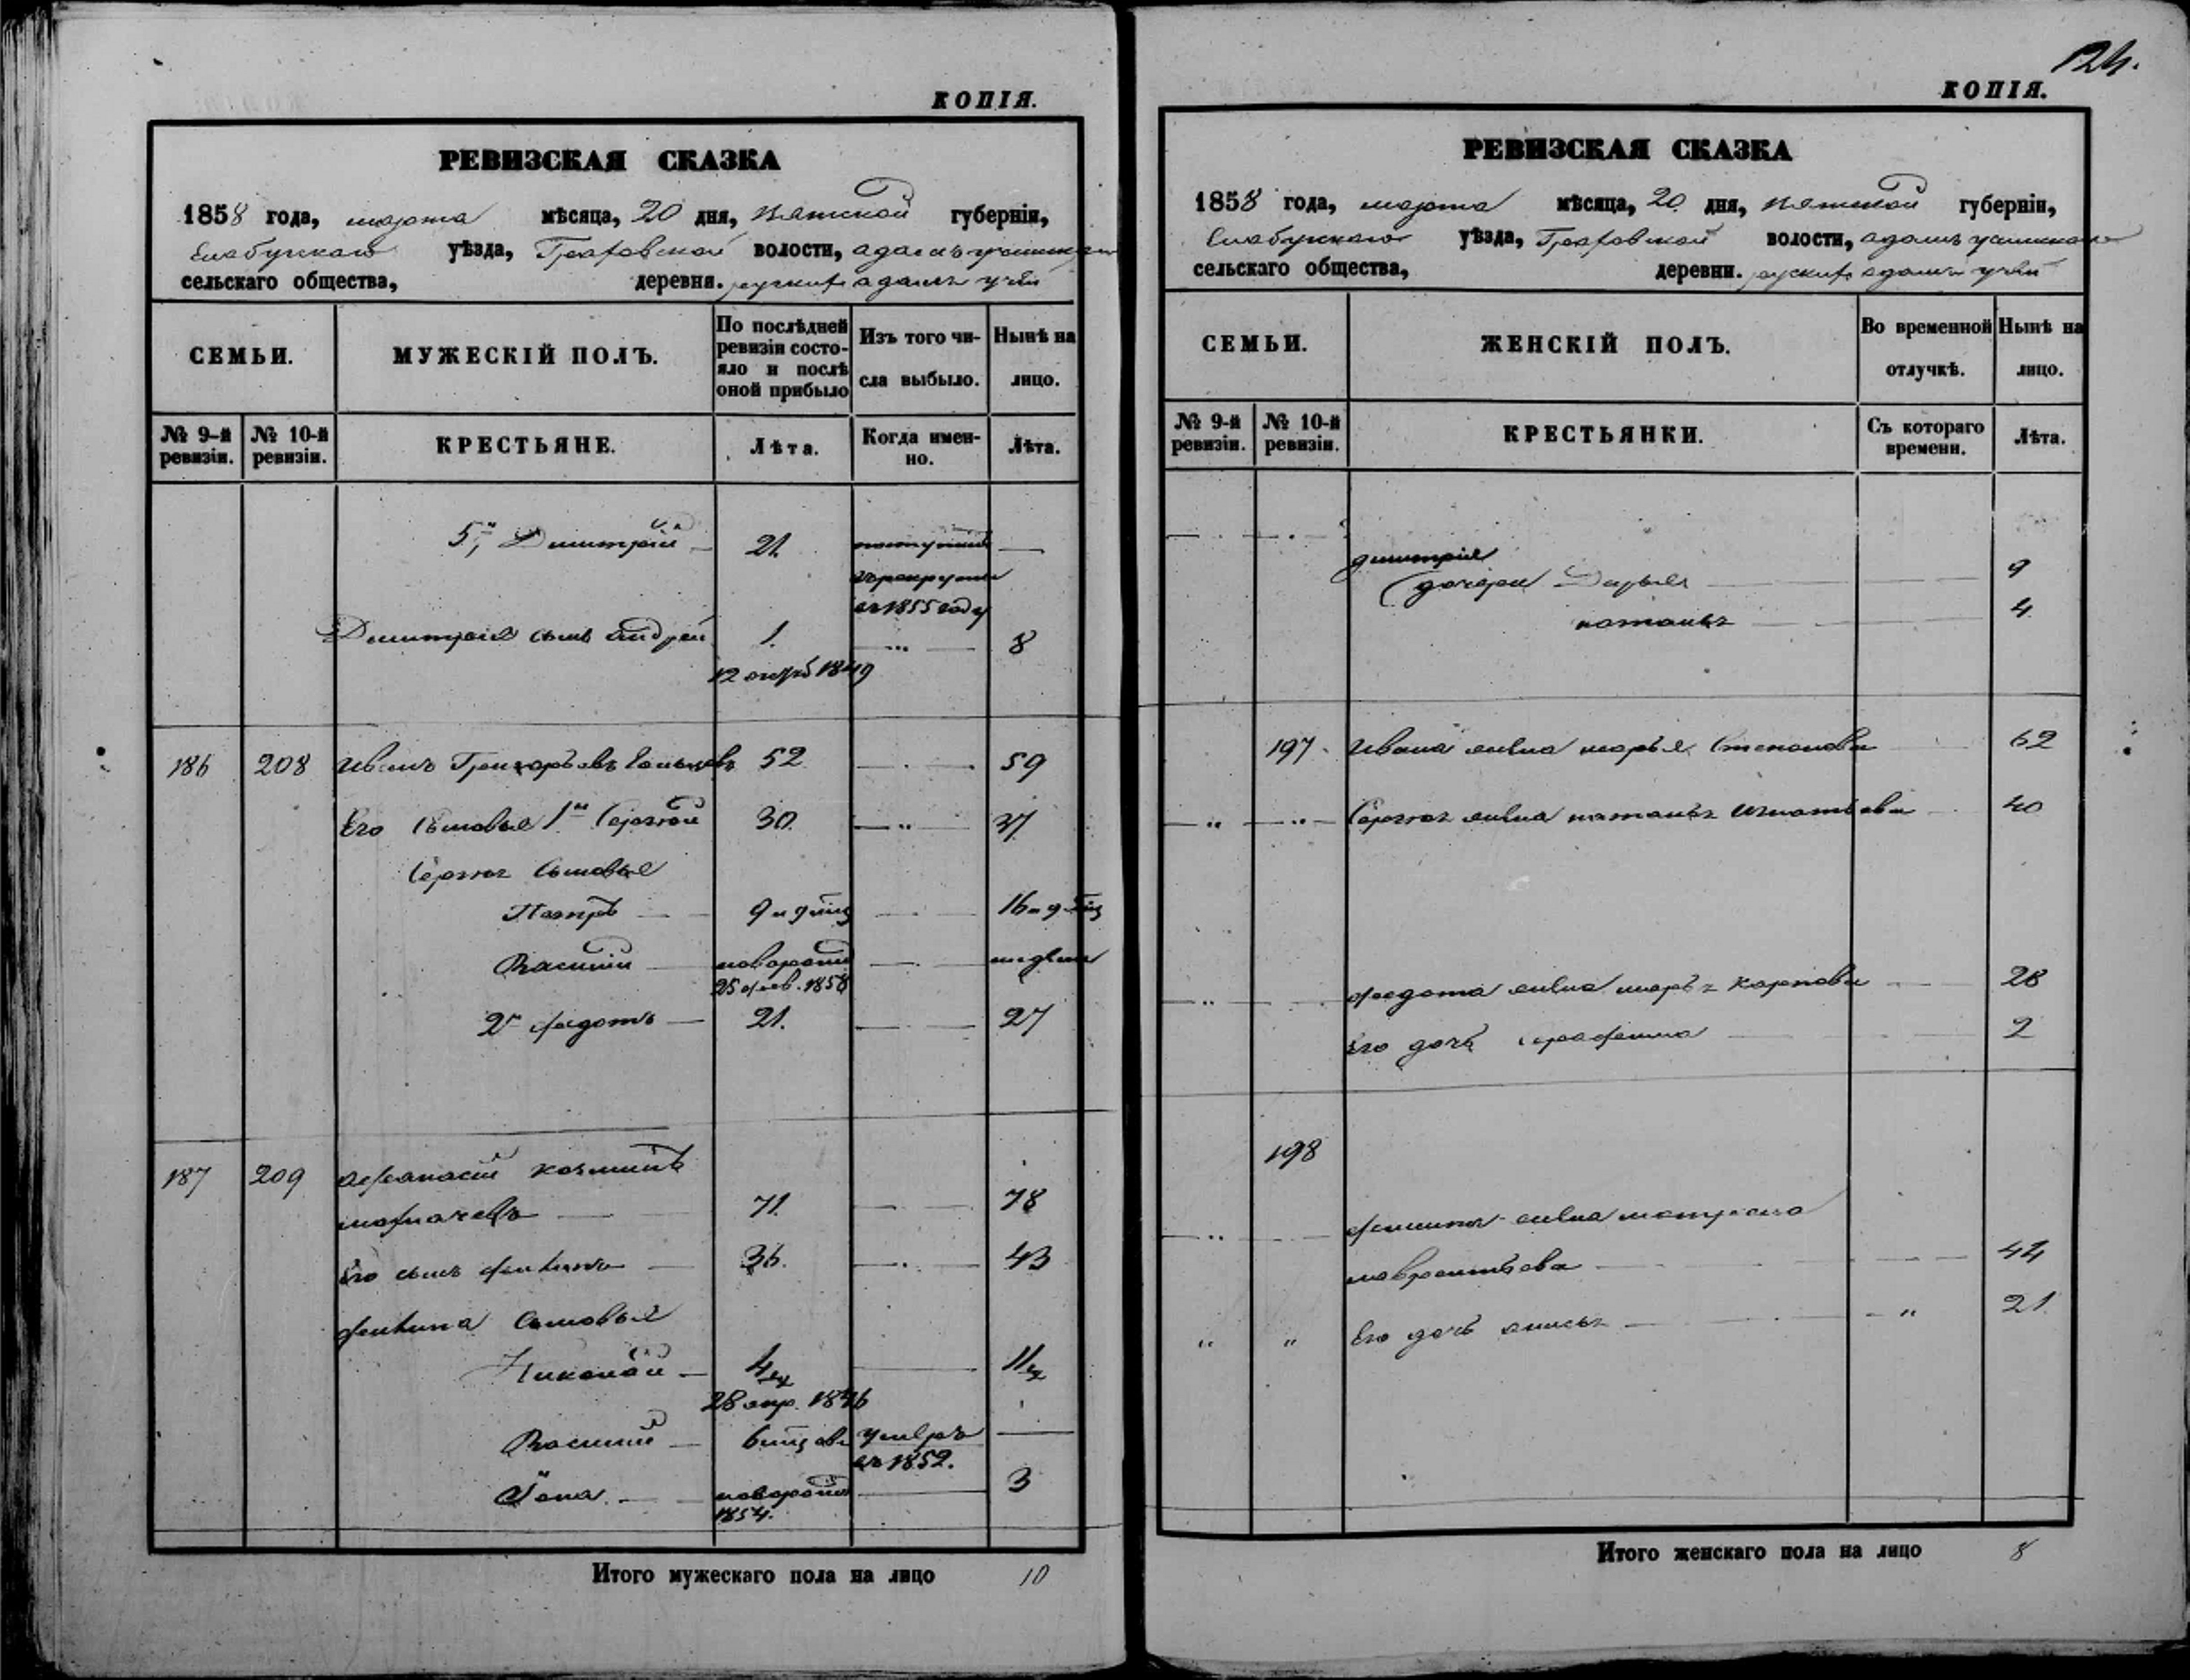 КОПІЯ.
РЕВИЗСКАЯ СКАЗКА
1858 года, марта мѣсяца, 20 дня, Вятской губерніи,
Елабужскаго уѣзда, Граховской волости,
сельскаго общества, деревни.
СЕМЬИ.
МУЖЕСКІЙ ПОЛЪ.
По послѣдней ревизіи состо-
яло и послѣ оной прибыло
Изъ того чи-
сла выбыло.
Нынѣ на
лицо.
№ 9-й ревизіи.
№ 10-й ревизіи.
КРЕСТЬЯНЕ.
Лѣта.
Когда имен-
но.
Лѣта.
5й Дмитрій 21 поступилъ
въ рекруты
въ 1855 году
Дмитрія сынъ Андрей 1. 8
12 1849
186 208 Иванъ Григорьевъ 52 59
Его Сыновья 1й Сергей 30. 37
Сергея Сыновья
Петръ 9 и 9 16 и 9
Василій новорожд
25 фев. 1858
2й Федотъ 21. 27
187 209 Афанасій Козминъ
71. 78
Его сынъ Филипъ 36. 43
Филипа Сыновья
Николай 4 11
28 апр. 1846
Василій 6 умеръ
въ 1852.
Іона новорожд 3
1854.
Итого мужескаго пола на лицо 10
124.
КОПІЯ.
РЕВИЗСКАЯ СКАЗКА
1858 года, марта мѣсяца, 20 дня, Вятской губерніи,
Елабужскаго уѣзда, Граховской волости,
сельскаго общества, деревни.
СЕМЬИ.
ЖЕНСКІЙ ПОЛЪ.
Во временной
отлучкѣ.
Нынѣ на
лицо.
№ 9-й ревизіи.
№ 10-й ревизіи.
КРЕСТЬЯНКИ.
Съ котораго
времени.
Лѣта.
Дмитрія
дочери Дарья 9
Наталья 4
197 Ивана жена Марья Степанова 62
Сергея жена Наталья Игнатьева 40
Федота жена Марья Карпова 28
Его дочь 2
198
Филипа жена Матрена
Лаврентьева 44
Его дочь Анисья 21
Итого женскаго пола на лицо 8